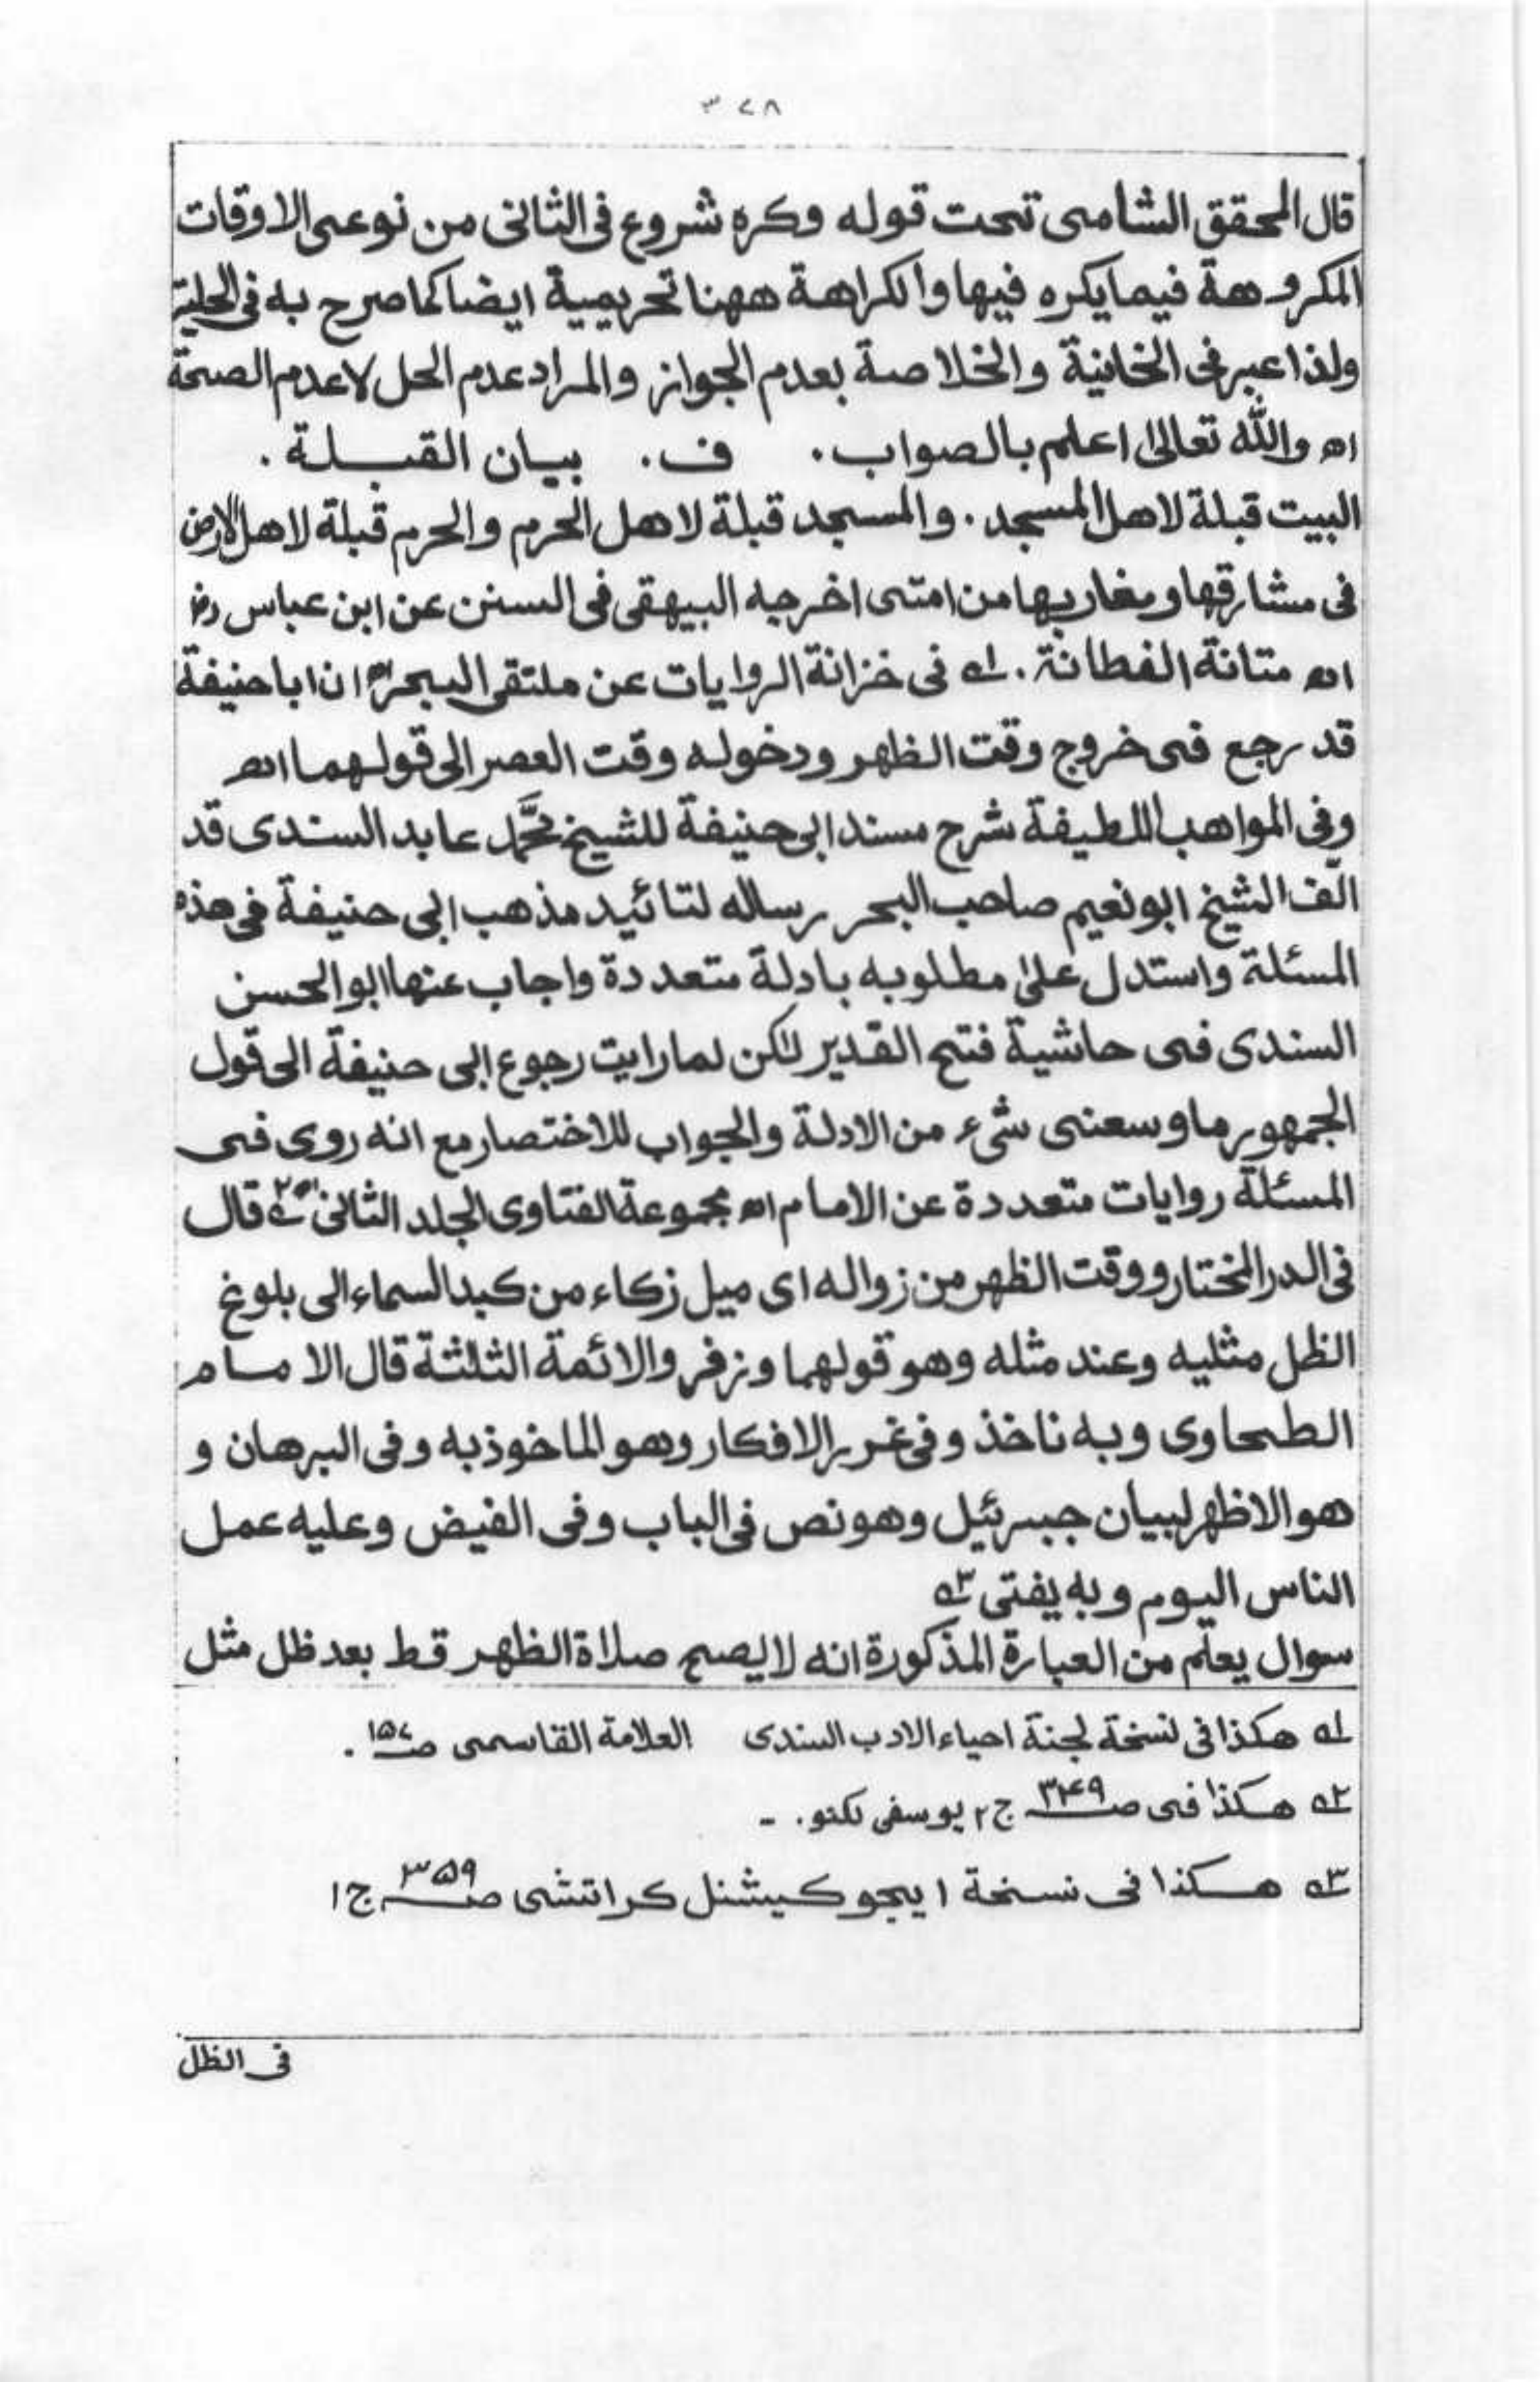 ٣٧٨
قال المحقق الشامى تحت قوله وكره شروع فى الثانى من نوعى الاوقات
المكروهة فيما يكره فيها والكراهة ههنا تحريمية ايضا كما صرح به فى الحلية
ولذا عبر فى الخانية والخلاصة بعدم الجواز والمراد عدم الحل لا عدم الصحة
اه والله تعالىٰ اعلم بالصواب . ف . بيان القبلة .
البيت قبلة لاهل المسجد . والمسجد قبلة لاهل الحرم والحرم قبلة لاهل الارض
فى مشارقها ومغاربها من امتى اخرجه البيهقى فى السنن عن ابن عباس رض
اه متانة الفطانة . ١ه فى خزانة الروايات عن ملتقى البحر ان ابا حنيفة
قد رجع فى خروج وقت الظهر ودخوله وقت العصر الى قولهما اه
وفى المواهب اللطيفة شرح مسند ابى حنيفة للشيخ محمَّد عابد السندى قد
الّف الشيخ ابو نعيم صاحب البحر رساله لتائيد مذهب ابى حنيفة فى هذه
المسئلة واستدل علىٰ مطلوبه بادلة متعددة واجاب عنها ابو الحسن
السندى فى حاشية فتح القدير لٰكن لما رايت رجوع ابى حنيفة الى قول
الجمهور ما وسعنى شىء من الادلة والجواب للاختصار مع انه روى فى
المسئلة روايات متعددة عن الامام اه مجموعة الفتاوى الجلد الثانى ٢ه قال
فى الدر المختار ووقت الظهر من زواله اى ميل زكاء من كبد السماء الى بلوغ
الظل مثليه وعند مثله وهو قولهما وزفر والائمة الثلثة قال الامام
الطحاوى وبه ناخذ وفى غرر الافكار وهو الماخوذ به وفى البرهان و
هو الاظهر لبيان جبرئيل وهو نص فى الباب وفى الفيض وعليه عمل
الناس اليوم وبه يفتى ٣ه
سوال يعلم من العبارة المذكورة انه لا يصح صلاة الظهر قط بعد ظل مثل
١ه هكذا فى نسخة لجنة احياء الادب السندى العلامة القاسمى صـ ١٥٧ .
٢ه هكذا فى صـ ٣٤٩ ج٢ يوسفى لكنو . -
٣ه هكذا فى نسخة ايجوكيشنل كراتشى صـ ٣٥٩ ج١
فى الظل